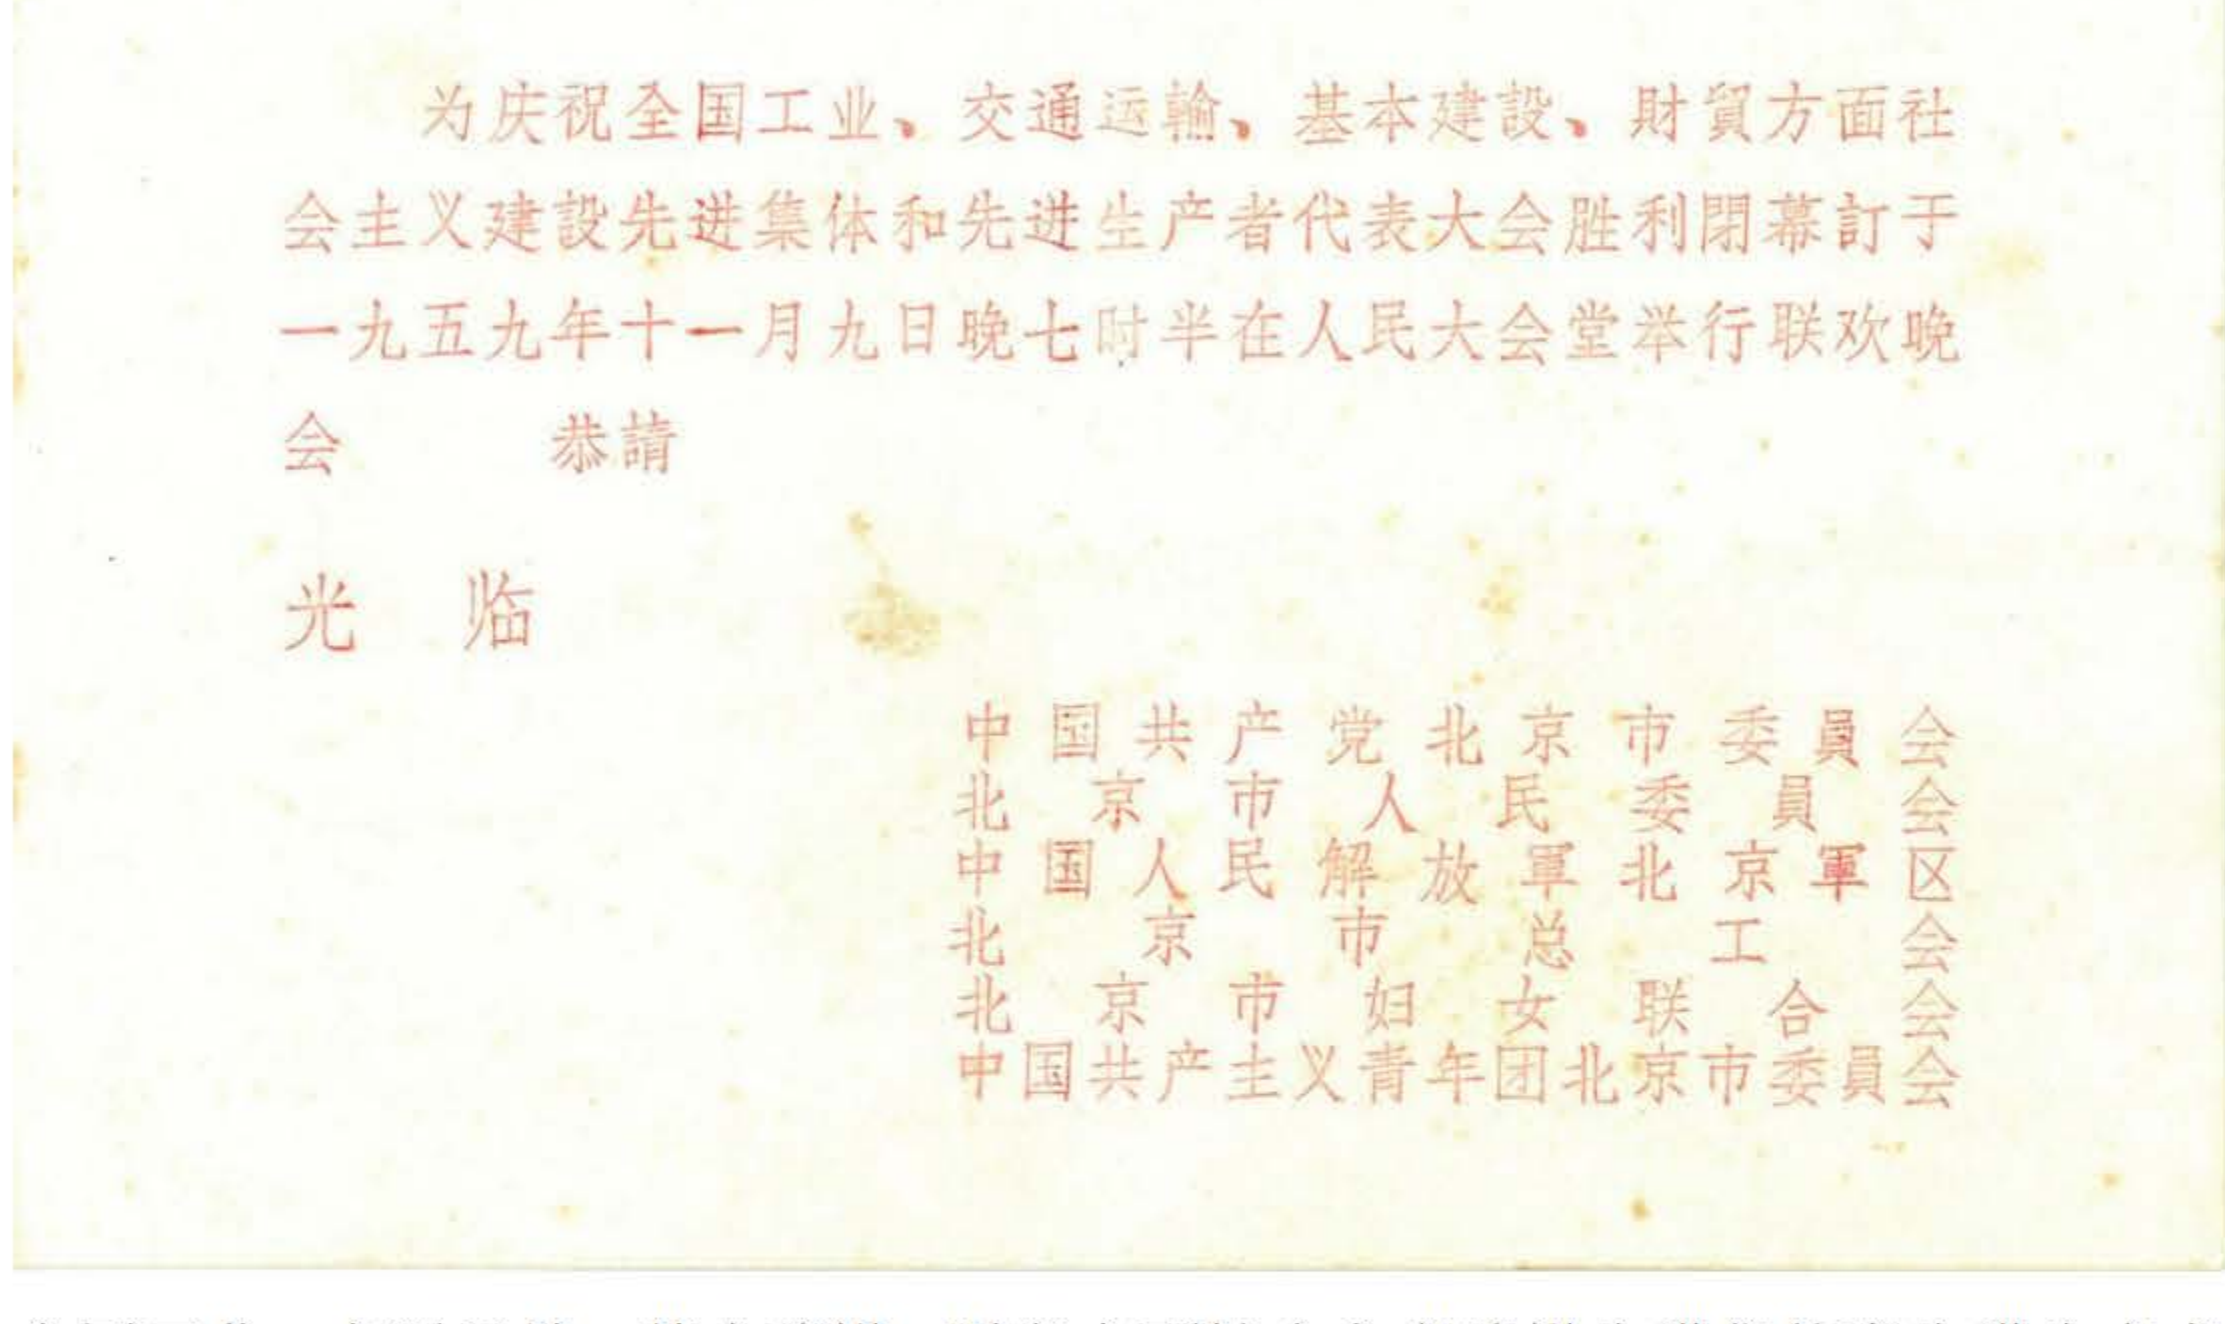 为庆祝全国工业、交通运輸、基本建設、財貿方面社
会主义建設先进集体和先进生产者代表大会胜利閉幕訂于
一九五九年十一月九日晚七时半在人民大会堂举行联欢晚
会 恭請
光 临
中国共产党北京市委員会
北京市人民委員会
中国人民解放軍北京軍区
北京市总工会
北京市妇女联合会
中国共产主义青年团北京市委員会